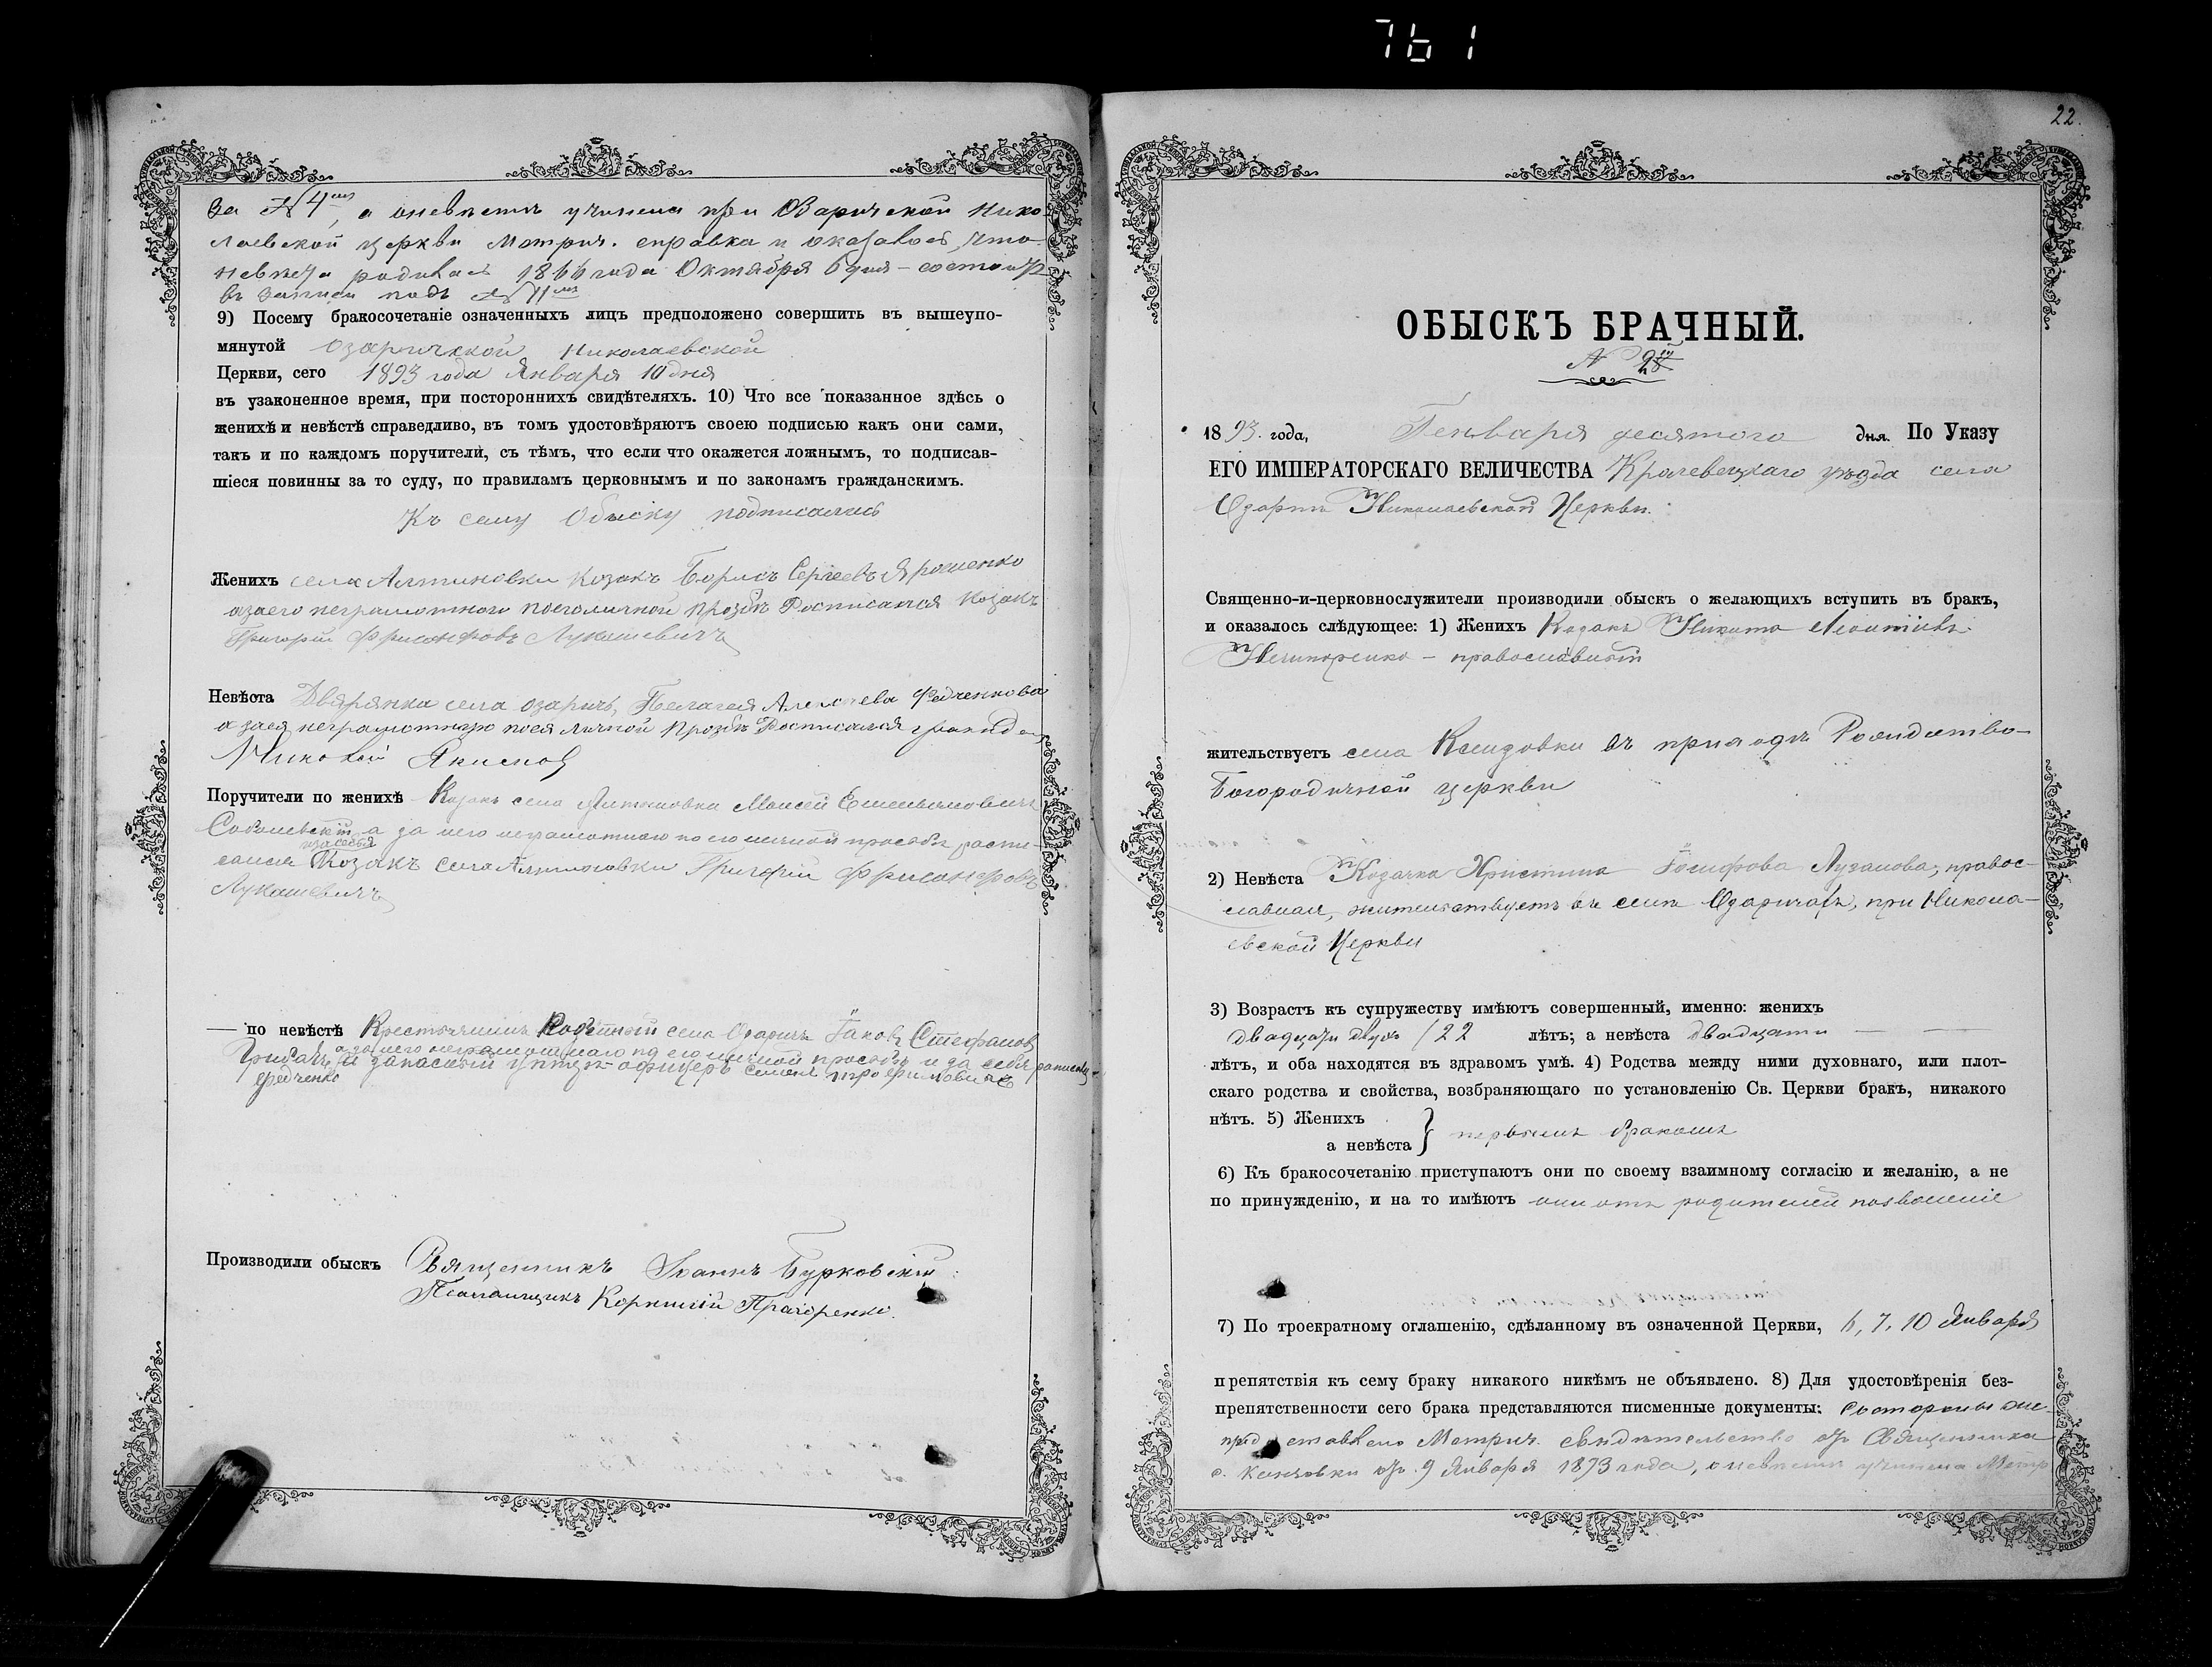 761
за № 4мъ, а о невѣстѣ учинена при Озаричской Нико-
лаевской церкви Метрич. справка и оказалось, что
невѣста родилась 1866 года Октября 6 дня – состоитъ
въ записи подъ № 11мъ
9) Посему бракосочетаніе означенныхъ лицъ предположено совершить въ вышеупо-
мянутой Озаричской Николаевской
Церкви, сего 1893 года Января 10 дня
въ узаконенное время, при постороннихъ свидѣтеляхъ. 10) Что все показанное здѣсь о
женихѣ и невѣстѣ справедливо, въ томъ удостовѣряютъ своею подписью какъ они сами,
такъ и по каждомъ поручители, съ тѣмъ, что если что окажется ложнымъ, то подписав-
шіеся повинны за то суду, по правиламъ церковнымъ и по законамъ гражданскимъ.
Къ сему Обыску подписались
Женихъ села Алтиновки козакъ Борисъ Сергеевъ Ярошенко
а за его неграмотного по его личной прозбѣ Росписался Козакъ
Григорій Лукашевичъ
Невѣста Дворянка села Озаричъ, Пелагея Алексеева Федченкова
а за ея неграмотную по ея личной Прозбѣ Росписался
Николай
Поручители по женихѣ Козакъ села Алтиновки Моисей Емельяновичъ
Соболевскій а за него неграмотного по его личной просьбѣ распи-
и за себя
сался Козакъ села Алтиновки Григорій
Лукашевичъ
— по невѣстѣ Крестьянинъ села Озаричъ Іаковъ Стефановъ
а за него неграмотнаго по его личной просьбѣ и за себя
запасный унтеръ офицеръ Семенъ Трофимовичъ
Федченко
Производили обыскъ Священникъ Іоаннъ Бурковскій
Псаломщикъ Корнилій
22.
ОБЫСКЪ БРАЧНЫЙ.
№ 2й
1893. года, Генваря десятого дня. По Указу
ЕГО ИМПЕРАТОРСКАГО ВЕЛИЧЕСТВА Кролевецкаго уѣзда села
Озаричъ Николаевской Церкви.
Священно-и-церковнослужители производили обыскъ о желающихъ вступить въ бракъ,
и оказалось слѣдующее: 1) Женихъ Козакъ Никита Леонтіевъ
Нечипоренко – православный
жительствуетъ села въ приходѣ Рождество-
Богородичной церкви
2) Невѣста Козачка Христина Іосифова Лузанова, правос-
лавная, жительствуетъ въ селѣ Озаричахъ, при Никола-
евской Церкви
3) Возрастъ къ супружеству имѣютъ совершенный, именно: женихъ
двадцати двухъ /22 лѣтъ; а невѣста двадцати —
лѣтъ, и оба находятся въ здравомъ умѣ. 4) Родства между ними духовнаго, или плот-
скаго родства и свойства, возбраняющаго по установленію Св. Церкви бракъ, никакого
нѣтъ. 5) Женихъ
а невѣста } первымъ бракомъ
6) Къ бракосочетанію приступаютъ они по своему взаимному согласію и желанію, а не
по принужденію, и на то имѣютъ они отъ родителей позволеніе
7) По троекратному оглашенію, сдѣланному въ означенной Церкви, 6, 7, 10 Января
препятствія къ сему браку никакого никѣмъ не объявлено. 8) Для удостовѣренія без-
препятственности сего брака представляются писменные документы: Со стороны же-
представлено Метрич. свидѣтельство отъ Священника
с. отъ 9 Января 1893 года, о невѣстѣ учинена Метр